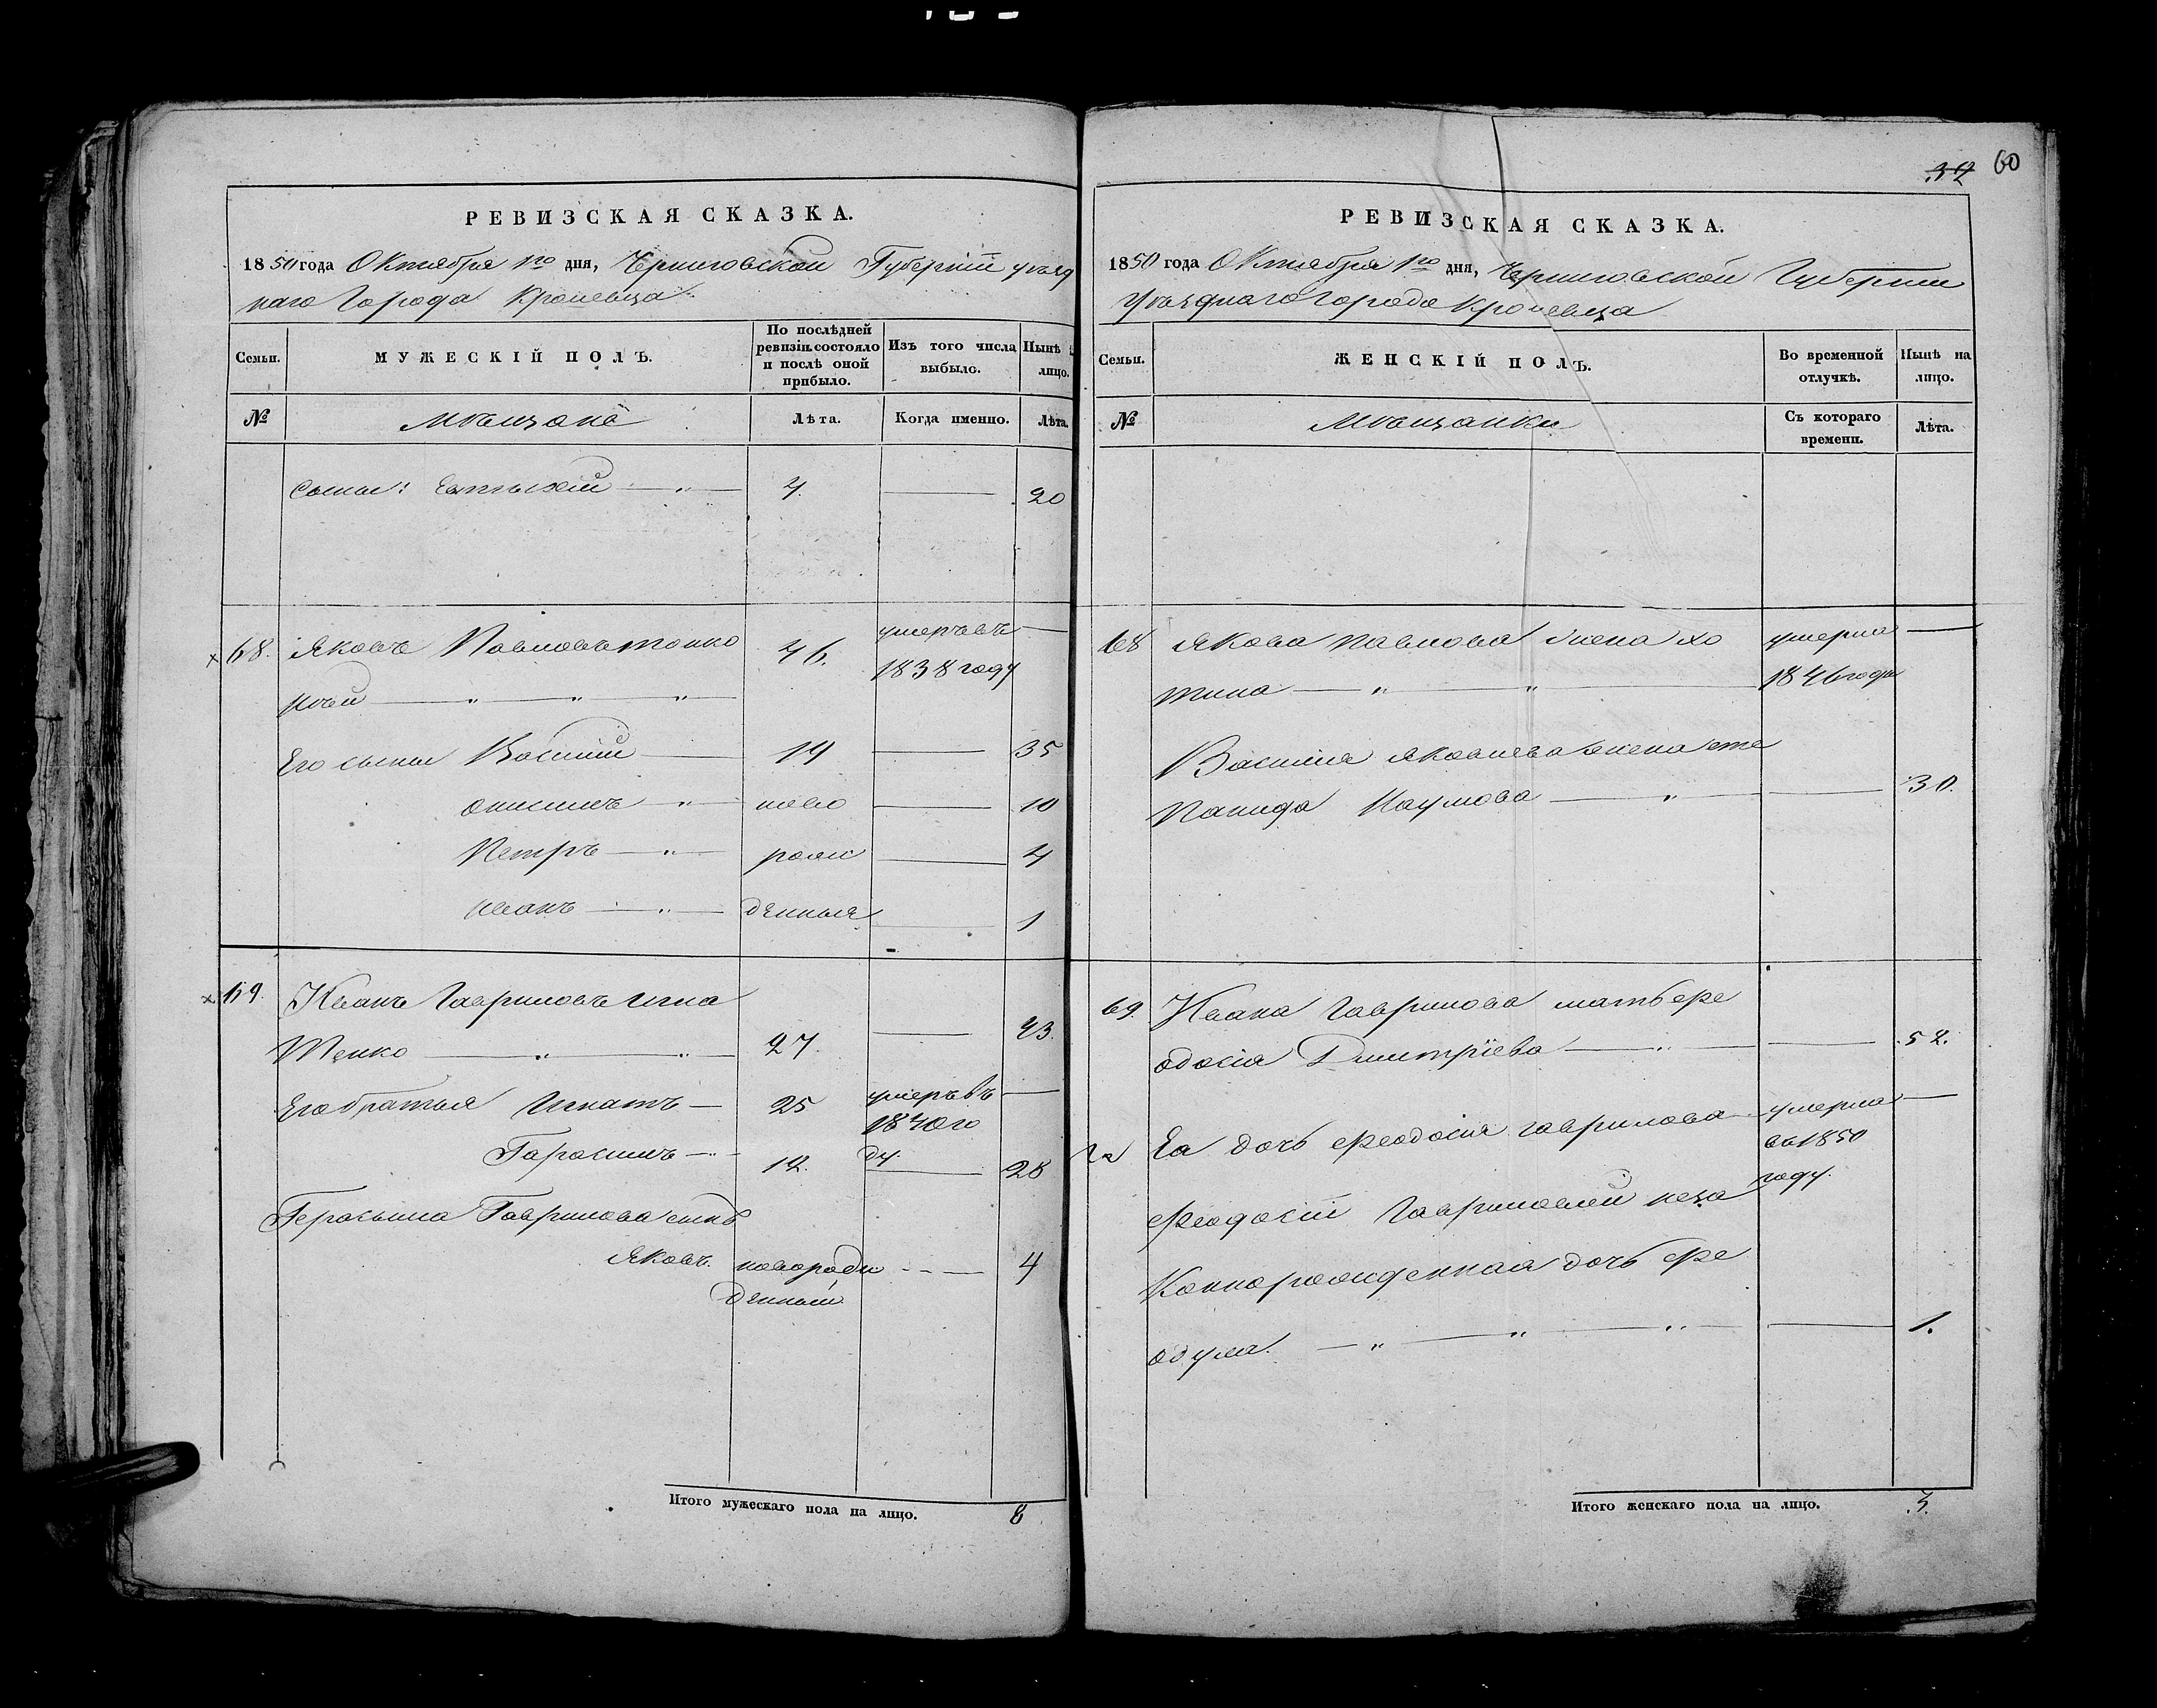 32 60
РЕВИЗСКАЯ СКАЗКА.
1850 года Октября 1го дня, Черниговской Губерніи уѣзд
наго Города Кролевца
Семьи. МУЖЕСКІЙ ПОЛЪ. По послѣдней ревизіи состояло и послѣ оной прибыло. Изъ того числа выбыло. Нынѣ на лицо.
№ Мѣщане Лѣта. Когда именно. Лѣта.
Сынъ: 4. 20
68. Яковъ Павловъ Тонко 46. умеръ въ
1838 году
Его сыны Василій 19 35
Онисимъ ново 10
Петръ рож 4
Иванъ денныя 1
69. Иванъ Гавриловъ Игна
тенко 27. 43.
Его братья Игнатъ 25 умеръ въ
1840 го
ду
Гарасимъ 12. 28
Герасима Гаврилова сынъ
Яковъ. новорож 4
денный
Итого мужескаго пола на лицо. 8
РЕВИЗСКАЯ СКАЗКА.
1850 года Октября 1го дня, Черниговской Губерніи
Уѣзднаго города Кролевца
Семьи. ЖЕНСКІЙ ПОЛЪ. Во временной отлучкѣ. Нынѣ на лицо.
№ Мѣщанки Съ котораго времени. Лѣта.
68 Якова Павлова жена Хо умерла
тина 1846 года
Василія Яковлева жена Сте
панида Наумова 30.
69. Ивана Гаврилова мать Фе
одосія Дмитріева 52.
Еа дочь Феодосія Гаврилова умерла
въ 1850
году.
Феодосіи Гавриловой неза
коннорожденная дочь Фе
1.
Итого женскаго пола на лицо. 3.